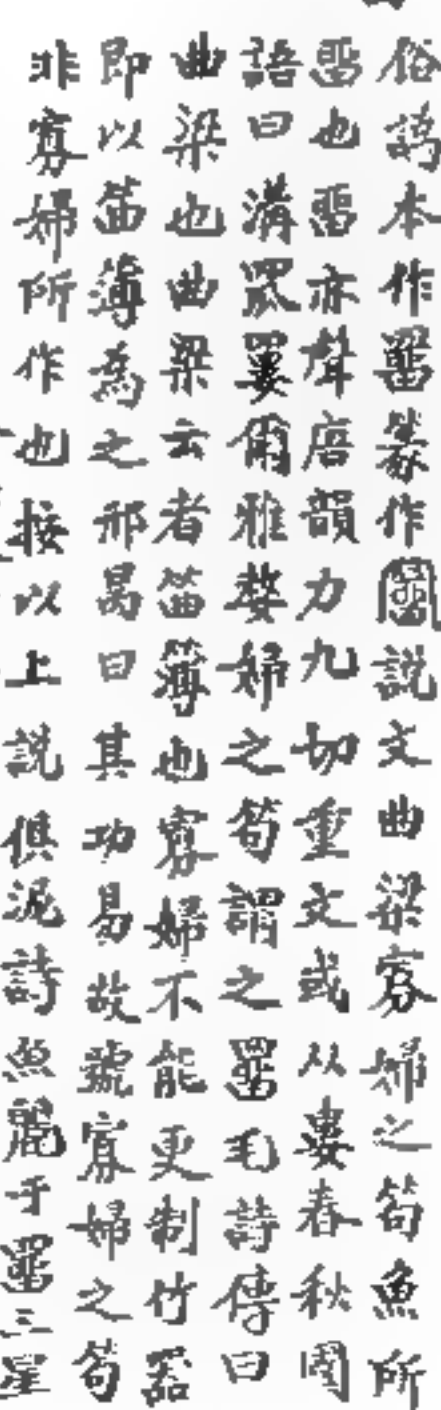 俗譌本作罶篆作罶說文曲梁寡婦之笱魚所
罶也罶亦聲唐韻力九切重文或从婁春秋國
語曰溝罛罶爾雅嫠婦之笱謂之罶毛詩傳曰
曲梁也曲梁云者笛簿也寡婦不能更制竹器
即以笛薄為之邢昺曰其功易故號寡婦之笱
非寡婦所作也按以上説俱泥詩魚麗于罶三星